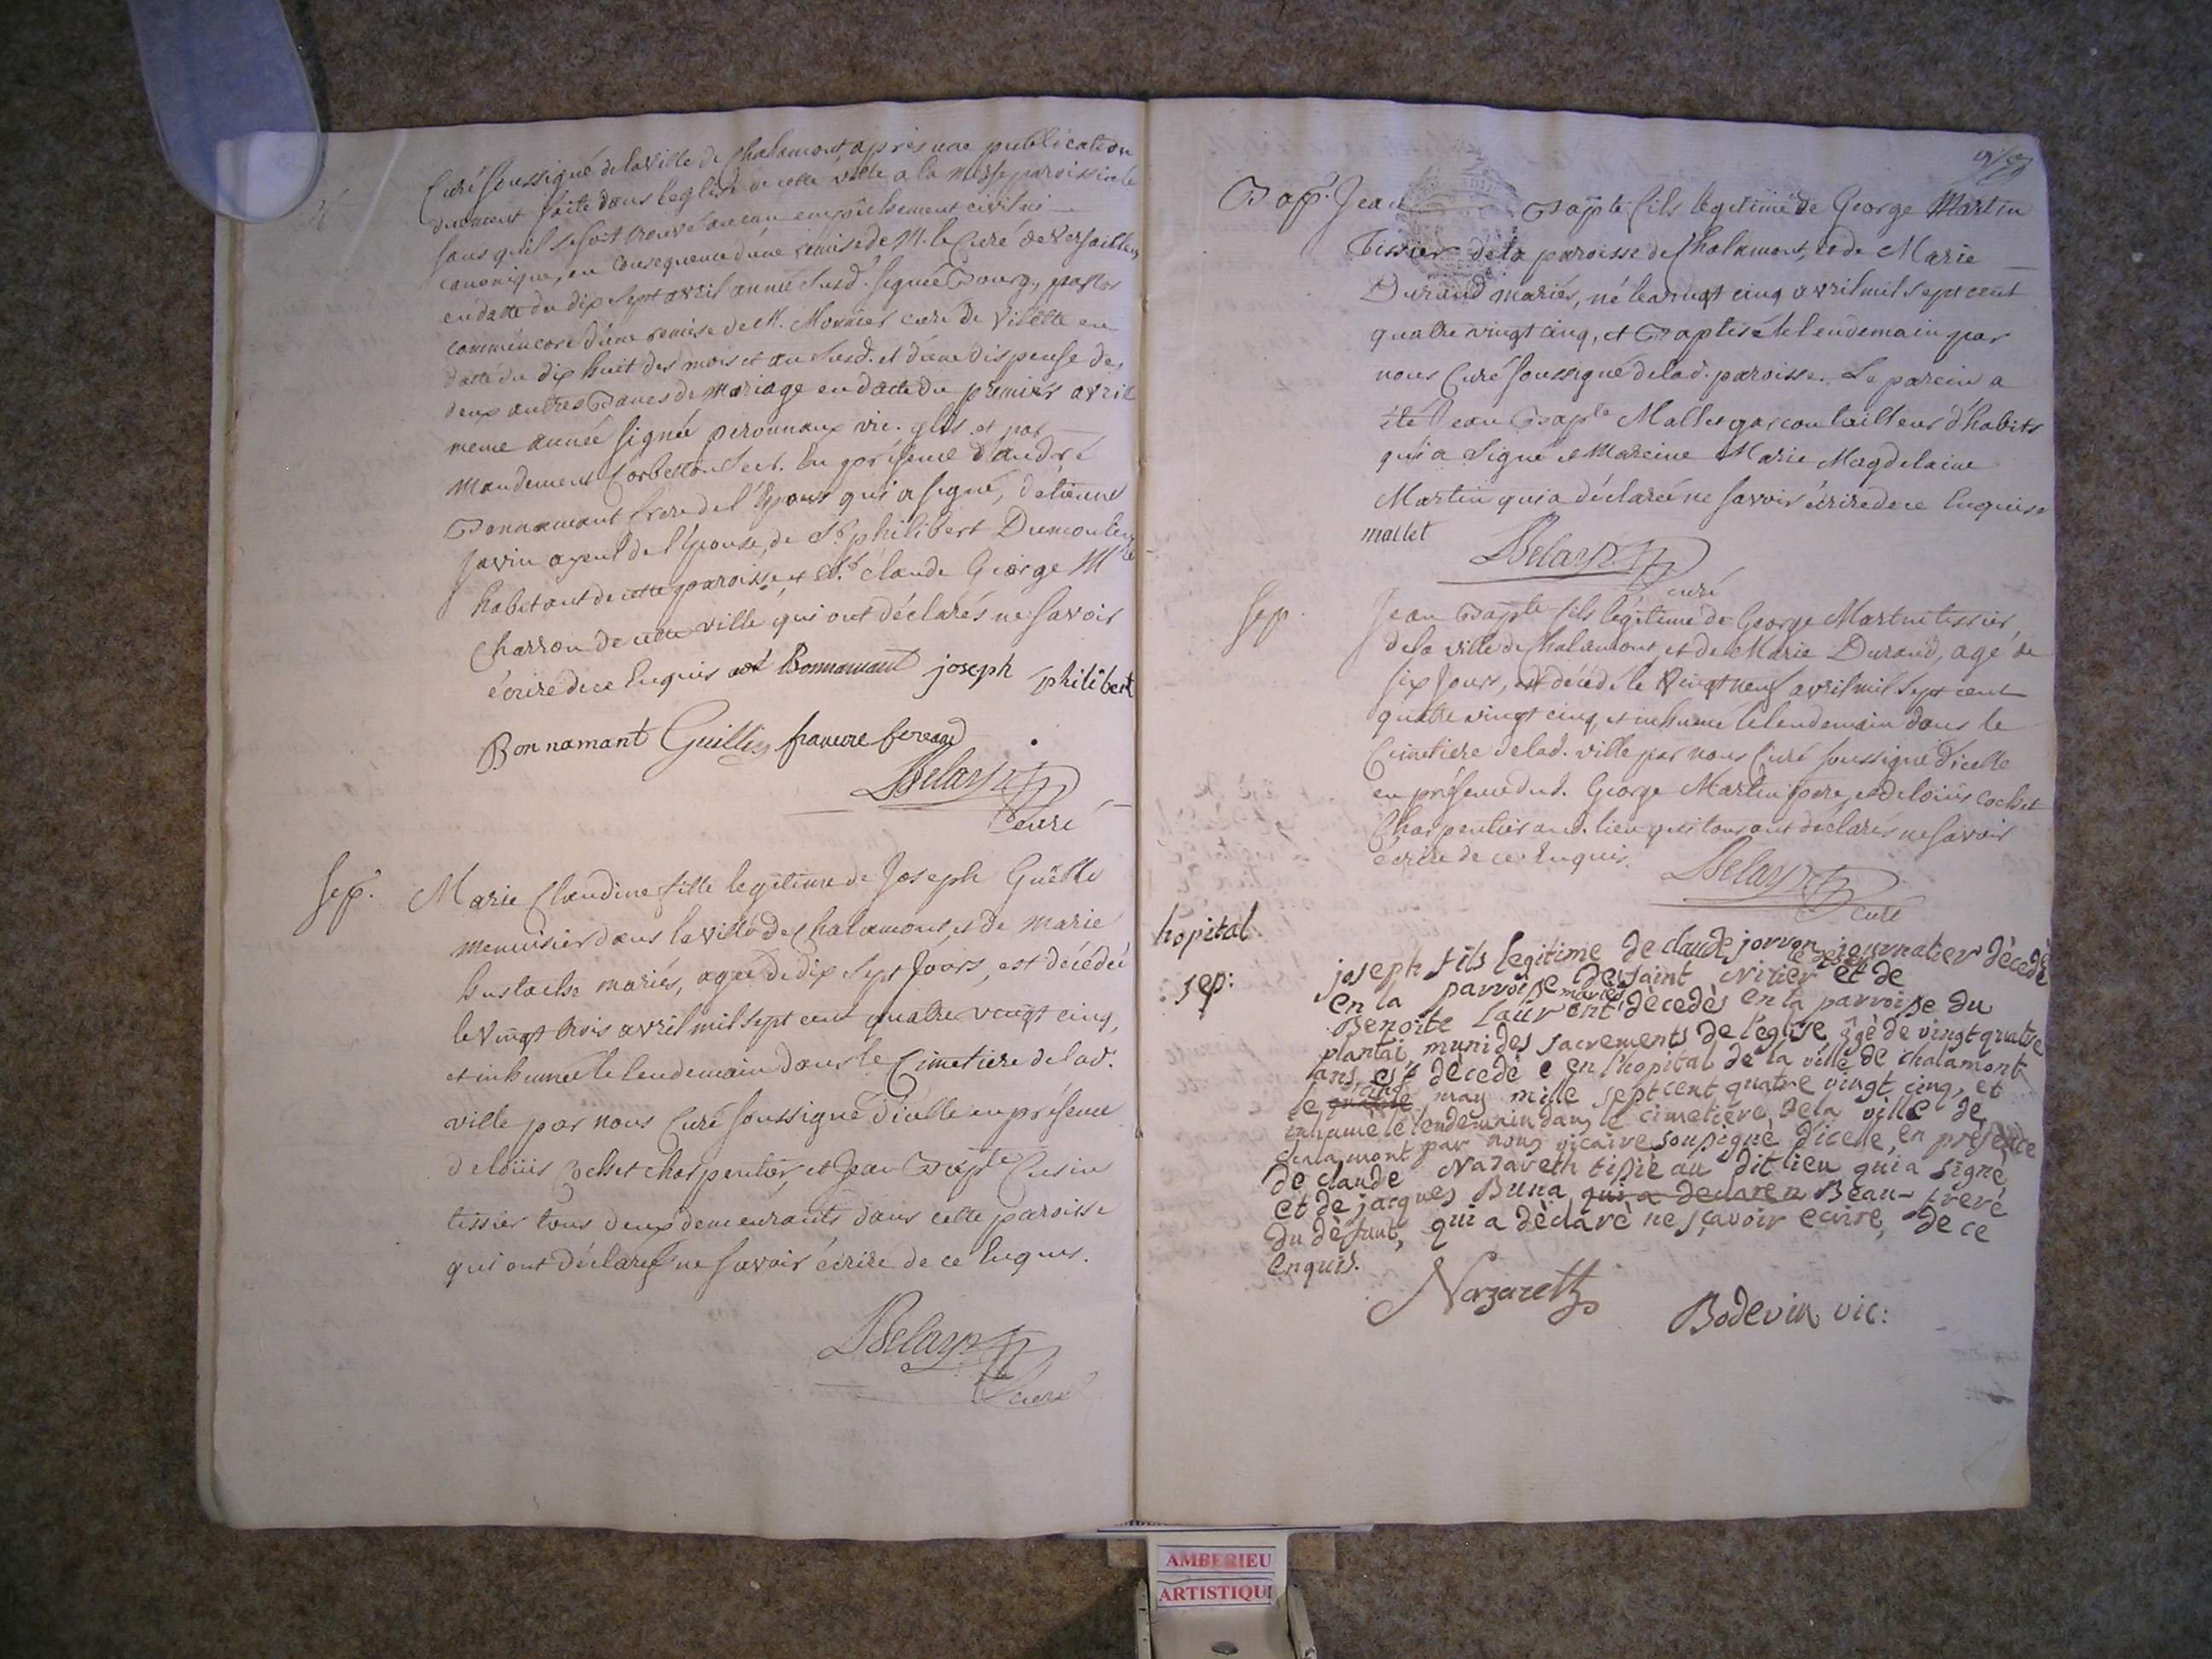 Curé soussigné de la ville de Chalamont après une publication
duement faite dans leglise de cette ville a la messe paroissiale
sans quil se soit trouvé aucun empechement civil ni
canonique, en consequence d'une remise de M. le Curé de Versailleux
en datte du dix sept avril année susd. signée Bourg,
comm'encore d'une remise de M. Monnier curé de Vilette en
datte du dix huit des mois et an susd. et d'une dispense de,
deux autres Bancs de mariage en datte du premier avril
meme année signée peronnaux vic. gal. et par
mandement Corbellon Secr. En présence d'andré
Bonnamant frere de l'Epoux qui a signé, detienne
Javin ayeul de l'Epouse, de Sr. philibert Dumoulin
habitant de cette paroisse, et Sr. claude George Me
Charron de cette ville qui ont déclarés ne savoir
écrire de ce Enquis Bonnamant joseph philibert
Bonnamant Guillin
Delaye
Curé
Sep. Marie Claudine fille legitime de Joseph Guette
menuisier dans la ville de Chalamont, et de Marie
Eustache mariés, agée de dix sept Jours, est décédée
le vingt trois avril mil sept cent quatre vingt cinq,
et inhumée le lendemain dans le Cimetiere de lad.
ville par nous Curé soussigné d'icelle en présence
de loüis Cochet charpentier, et Jean Bapte Cusin
tissier tous deux demeurants dans cette paroisse
qui ont déclarés ne savoir écrire de ce Enquis.
Delaye
Curé
Bap. Jean Bapte fils légitime de George Martin
tissier de la paroisse de Chalamont, et de Marie
Durand mariés, né le vingt cinq avril mil sept cent
quatre vingt cinq, et Baptisé le lendemain par
nous Curé soussigné de lad. paroisse. Le parein a
été Jean Bapte Mallet garçon tailleur d'habits
qui a signé et Mareine Marie Magdelaine
Martin qui a déclaré ne savoir écrire de ce Enquise
mallet
Delaye
Curé
Sep. Jean Bapte fils légitime de George Martin tissier
de la ville de Chalamont, et de Marie Durand, agé de
six Jours, est décédé le Vingt neuf avril mil sept cent
quatre vingt cinq, et inhumé le lendemain dans le
Cimetiere de lad. ville par nous Curé soussigné d'icelle
en présence dud. George Martin pere, et de loüis Cochet
Charpentier aud. lieu qui tous ont declarés ne Savoir
écrire de ce Enquis.
Delaye
Curé
hopital
sep: joseph fils legitime de claude jorron journalier dècedè
en la parroisse de saint Nizier le desert et de
Benoite Laurent mariés dècedès en la parroisse du
plantai, muni des sacrements de l'eglise, âgè de vingt quatre
ans, est dècedè e en l'hopital de la ville de chalamont
le quatre cinq may mille sept cent quatre vingt cinq, et
inhumé le lendemain dans le cimetiere de la ville de
chalamont par nous vicaire soussignè d'icelle, en prèsence
de claude Nazareth tissiè au dit lieu qui a signè
et de jacques Buna qui a declarè n Beau-frere
du dèfunt, qui a dèclarè ne sçavoir ecrire, de ce
enquis.
Nazareth Bodevin vic:
AMBERIEU
ARTISTIQU